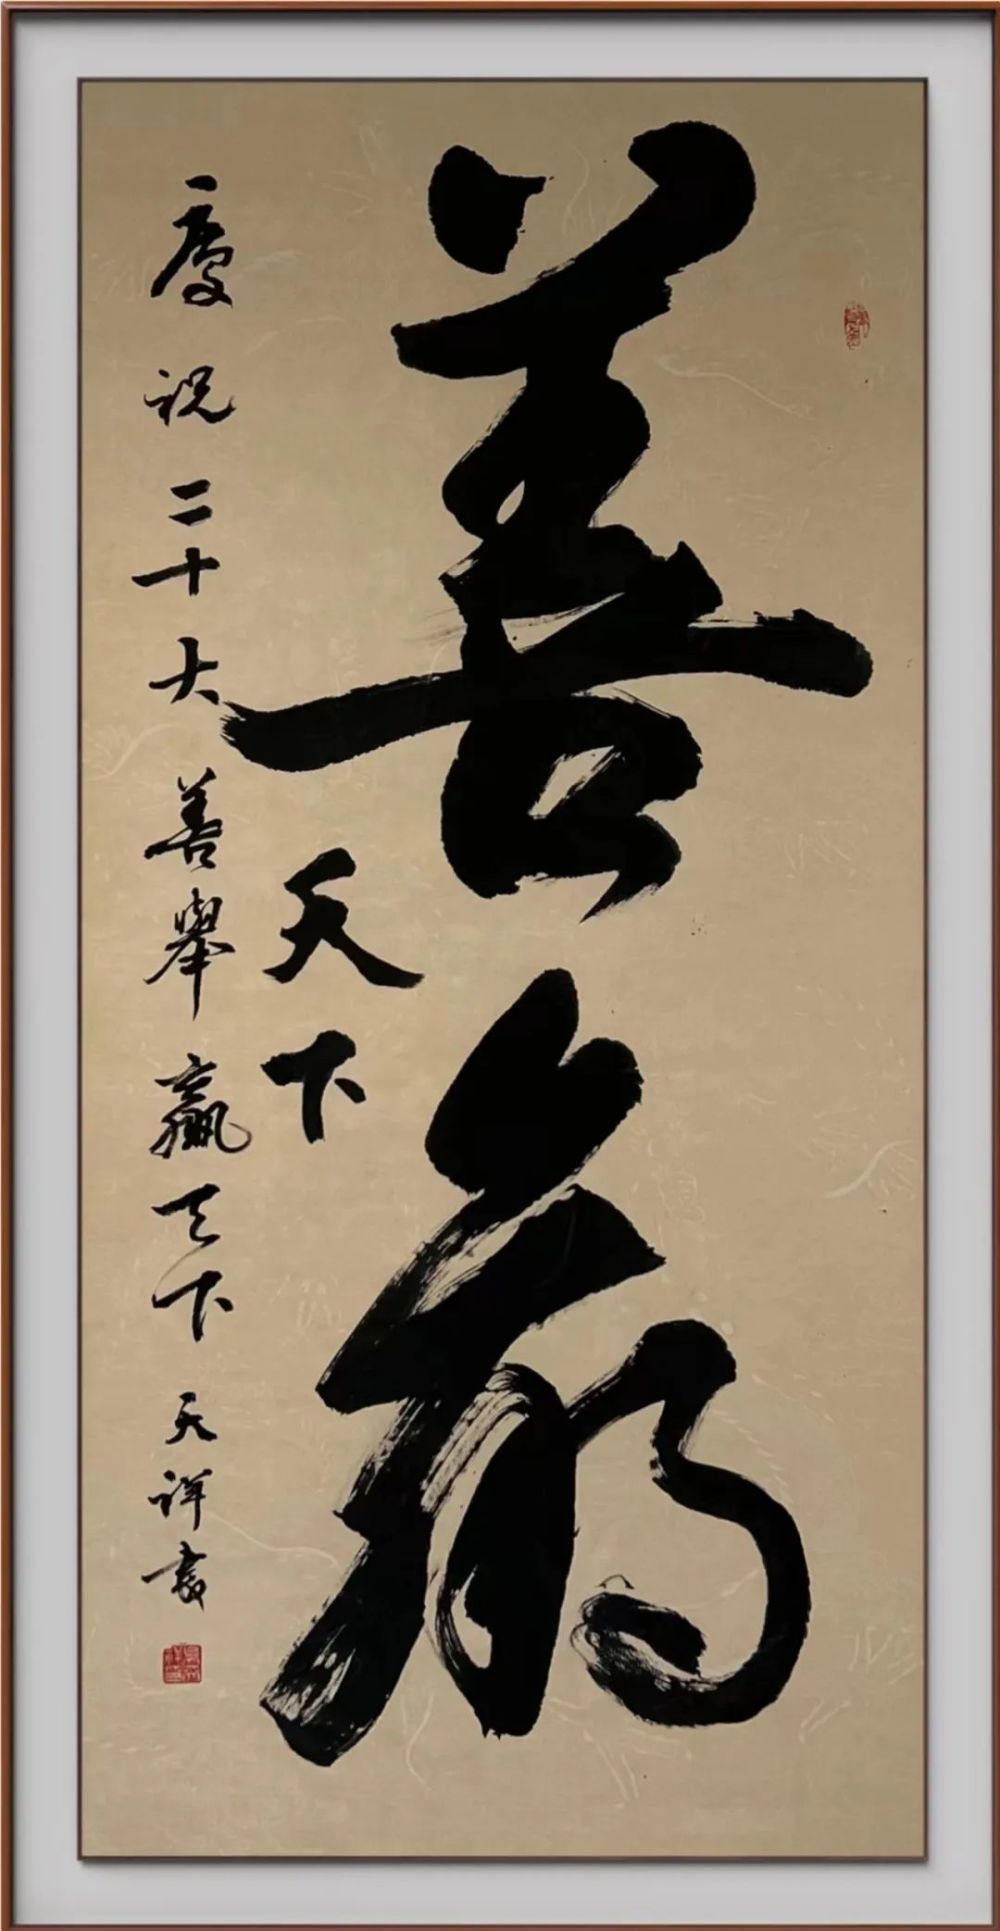 善
天下
慶祝二十大善舉贏天下天祥書